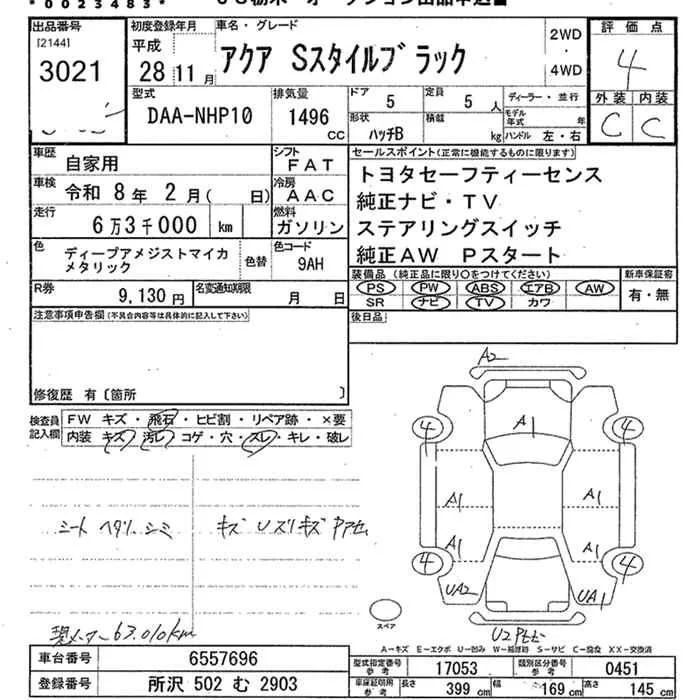 *0023483*
出品番号
[2144]
3021
初度登録年月
平成
28年11月
車名・グレード
アクア Sスタイルブラック
2WD
・
4WD
評価点
4
外装 内装
C C
型式
DAA-NHP10
排気量
1496
CC
ドア
5
定員
5 人
形状
ハッチB
積載
kg
ディーラー・並行
モデル年式 年
ハンドル 左・右
車歴
自家用
シフト
FAT
車検
令和 8年 2月( 日)
冷房
AAC
走行
6万3千000 km
燃料
ガソリン
色
ディープアメジストマイカ
メタリック
色替
色コード
9AH
R券
9,130円
名変通知期限
月 日
セールスポイント(正常に機能するものに限ります)
トヨタセーフティーセンス
純正ナビ・TV
ステアリングスイッチ
純正AW Pスタート
装備品 (純正品に限り○をつけてください)
PS PW ABS エアB AW
SR ナビ TV カワ
新車保証書
有・無
後日品
注意事項申告欄(不具合内容等は具体的に記入して下さい)
修復歴 有〔箇所 〕
検査員
記入欄
FW キズ・飛石・ヒビ割・リペア跡・×要
内装 キズ・汚レ・コゲ・穴・スレ・キレ・破レ
シート ヘタリ シミ
キズ Uズリキズ
63,010km
A2
A1
4 4
A1 A1
A1 A1
4 4
UA2 UA1
U2
スペア
A-キズ E-エクボ U-凹み W-補修跡 S-サビ C-腐食 XX-交換済
車台番号
6557696
登録番号
所沢 502 む 2903
型式指定番号
参考
17053
類別区分番号
参考
0451
車庫証明用
参考
長さ 399 cm
幅 169 cm
高さ 145 cm